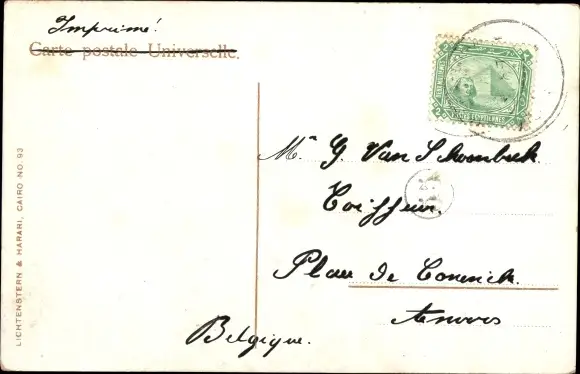 Imprimé!
Carte postale Universelle.
POSTES EGYPTIENNES
Mr G. Van Schoonbeek
Coiffeur.
Place De Coninck.
Anvers
Belgique.
LICHTENSTERN & HARARI, CAIRO NO. 93